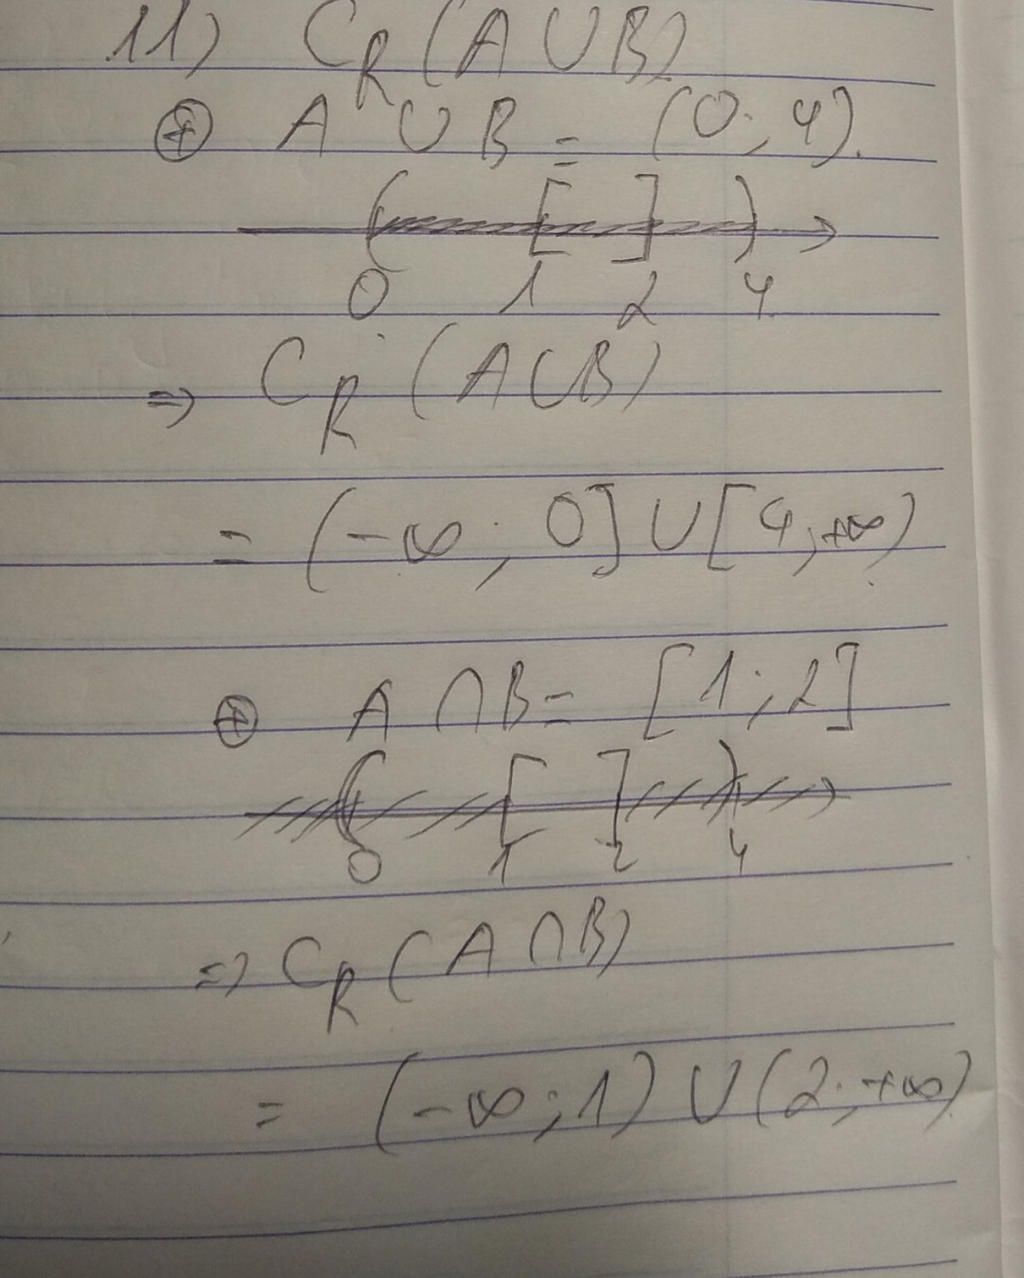 11) C_R (A ∪ B)
⊕ A ∪ B = (0; 4).
( [ ] )
0 1 2 4
⇒ C_R (A ∪ B)
= (-∞; 0] ∪ [4; +∞)
⊕ A ∩ B = [1; 2]
( [ ] )
0 1 2 4
⇒ C_R (A ∩ B)
= (-∞; 1) ∪ (2; +∞)